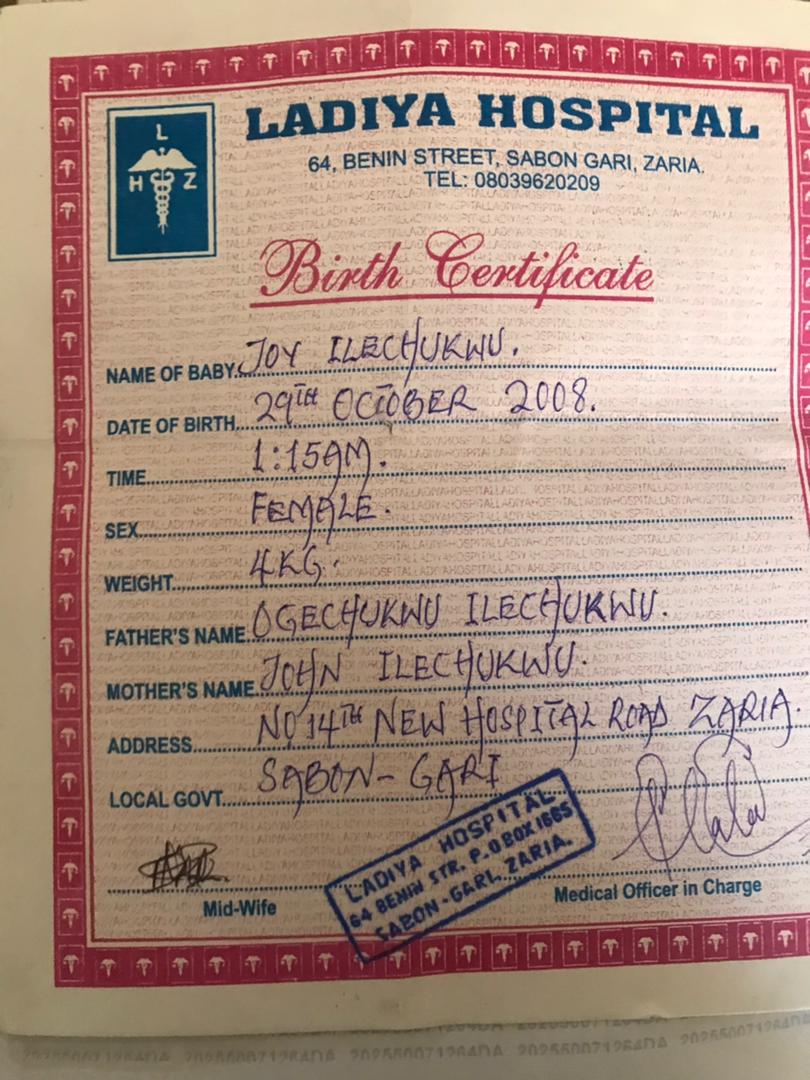 L
H Z
LADIYA HOSPITAL
64, BENIN STREET, SABON GARI, ZARIA.
TEL: 08039620209
Birth Certificate
NAME OF BABY. JOY ILECHUKWU.
DATE OF BIRTH 29TH OCTOBER 2008.
TIME 1:15AM.
SEX FEMALE.
WEIGHT 4KG.
FATHER'S NAME OGECHUKWU ILECHUKWU.
MOTHER'S NAME JOHN ILECHUKWU.
ADDRESS NO 14TH NEW HOSPITAL ROAD ZARIA.
LOCAL GOVT. SABON-GARI
LADIYA HOSPITAL
64 BENIN STR. P.O BOX 1665
SABON-GARI, ZARIA.
Mid-Wife
Medical Officer in Charge